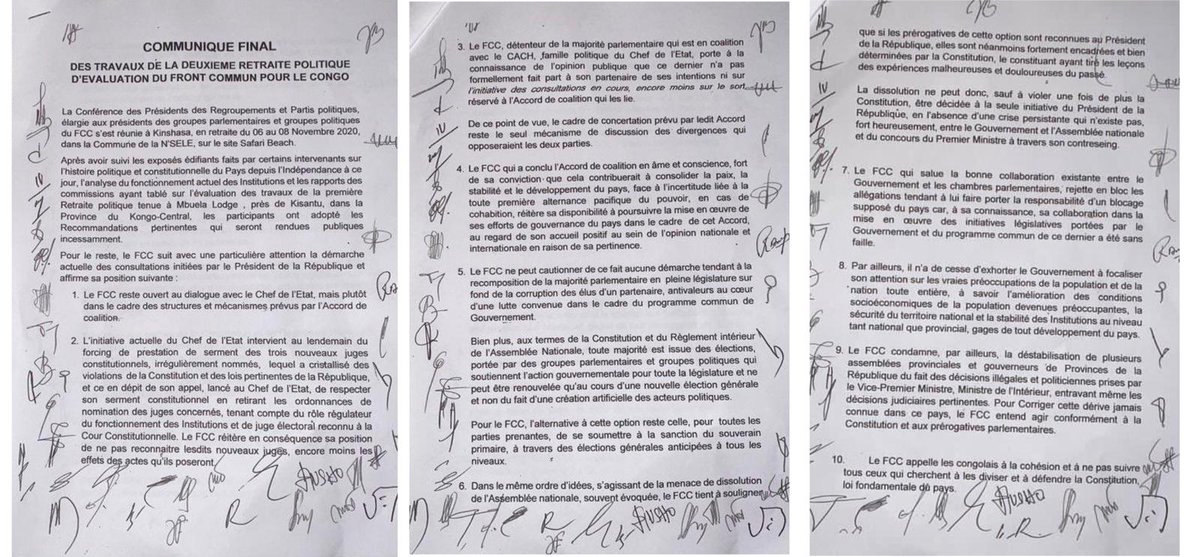 COMMUNIQUE FINAL
DES TRAVAUX DE LA DEUXIEME RETRAITE POLITIQUE
D'EVALUATION DU FRONT COMMUN POUR LE CONGO
La Conférence des Présidents des Regroupements et Partis politiques,
élargie aux présidents des groupes parlementaires et groupes politiques
du FCC s'est réunie à Kinshasa, en retraite du 06 au 08 Novembre 2020,
dans la Commune de la N'SELE, sur le site Safari Beach.
Après avoir suivi les exposés édifiants faits par certains intervenants sur
l'histoire politique et constitutionnelle du Pays depuis l'Indépendance à ce
jour, l'analyse du fonctionnement actuel des Institutions et les rapports des
commissions ayant tablé sur l'évaluation des travaux de la première
Retraite politique tenue à Mbuela Lodge , près de Kisantu, dans la
Province du Kongo-Central, les participants ont adopté les
Recommandations pertinentes qui seront rendues publiques
incessamment.
Pour le reste, le FCC suit avec une particulière attention la démarche
actuelle des consultations initiées par le Président de la République et
affirme sa position suivante :
1. Le FCC reste ouvert au dialogue avec le Chef de l'Etat, mais plutôt
dans le cadre des structures et mécanismes prévus par l'Accord de
coalition.
2. L'initiative actuelle du Chef de l'Etat intervient au lendemain du
forcing de prestation de serment des trois nouveaux juges
constitutionnels, irrégulièrement nommés, lequel a cristallisé des
violations de la Constitution et des lois pertinentes de la République,
et ce en dépit de son appel, lancé au Chef de l'Etat, de respecter
son serment constitutionnel en retirant les ordonnances de
nomination des juges concernés, tenant compte du rôle régulateur
du fonctionnement des Institutions et de juge électoral reconnu à la
Cour Constitutionnelle. Le FCC réitère en conséquence sa position
de ne pas reconnaitre lesdits nouveaux juges, encore moins les
effets des actes qu'ils poseront.
3. Le FCC, détenteur de la majorité parlementaire qui est en coalition
avec le CACH, famille politique du Chef de l'Etat, porte à la
connaissance de l'opinion publique que ce dernier n'a pas
formellement fait part à son partenaire de ses intentions ni sur
l'initiative des consultations en cours, encore moins sur le sort
réservé à l'Accord de coalition qui les lie.
De ce point de vue, le cadre de concertation prévu par ledit Accord
reste le seul mécanisme de discussion des divergences qui
opposeraient les deux parties.
4. Le FCC qui a conclu l'Accord de coalition en âme et conscience, fort
de sa conviction que cela contribuerait à consolider la paix, la
stabilité et le développement du pays, face à l'incertitude liée à la
toute première alternance pacifique du pouvoir, en cas de
cohabitation, réitère sa disponibilité à poursuivre la mise en œuvre de
ses efforts de gouvernance du pays dans le cadre de cet Accord,
au regard de son accueil positif au sein de l'opinion nationale et
internationale en raison de sa pertinence.
5. Le FCC ne peut cautionner de ce fait aucune démarche tendant à la
recomposition de la majorité parlementaire en pleine législature sur
fond de la corruption des élus d'un partenaire, antivaleurs au cœur
d'une lutte convenue dans le cadre du programme commun de
Gouvernement.
Bien plus, aux termes de la Constitution et du Règlement intérieur
de l'Assemblée Nationale, toute majorité est issue des élections,
portée par des groupes parlementaires et groupes politiques qui
soutiennent l'action gouvernementale pour toute la législature et ne
peut être renouvelée qu'au cours d'une nouvelle élection générale
et non du fait d'une création artificielle des acteurs politiques.
Pour le FCC, l'alternative à cette option reste celle, pour toutes les
parties prenantes, de se soumettre à la sanction du souverain
primaire, à travers des élections générales anticipées à tous les
niveaux.
6. Dans le même ordre d'idées, s'agissant de la menace de dissolution
de l'Assemblée nationale, souvent évoquée, le FCC tient à souligner
que si les prérogatives de cette option sont reconnues au Président
de la République, elles sont néanmoins fortement encadrées et bien
déterminées par la Constitution, le constituant ayant tiré les leçons
des expériences malheureuses et douloureuses du passé.
La dissolution ne peut donc, sauf à violer une fois de plus la
Constitution, être décidée à la seule initiative du Président de la
République, en l'absence d'une crise persistante qui n'existe pas,
fort heureusement, entre le Gouvernement et l'Assemblée nationale
et du concours du Premier Ministre à travers son contreseing.
7. Le FCC qui salue la bonne collaboration existante entre le
Gouvernement et les chambres parlementaires, rejette en bloc les
allégations tendant à lui faire porter la responsabilité d'un blocage
supposé du pays car, à sa connaissance, sa collaboration dans la
mise en œuvre des initiatives législatives portées par le
Gouvernement et du programme commun de ce dernier a été sans
faille.
8. Par ailleurs, il n'a de cesse d'exhorter le Gouvernement à focaliser
son attention sur les vraies préoccupations de la population et de la
nation toute entière, à savoir l'amélioration des conditions
socioéconomiques de la population devenues préoccupantes, la
sécurité du territoire national et la stabilité des Institutions au niveau
tant national que provincial, gages de tout développement du pays.
9. Le FCC condamne, par ailleurs, la déstabilisation de plusieurs
assemblées provinciales et gouverneurs de Provinces de la
République du fait des décisions illégales et politiciennes prises par
le Vice-Premier Ministre, Ministre de l'Intérieur, entravant même les
décisions judiciaires pertinentes. Pour Corriger cette dérive jamais
connue dans ce pays, le FCC entend agir conformément à la
Constitution et aux prérogatives parlementaires.
10. Le FCC appelle les congolais à la cohésion et à ne pas suivre
tous ceux qui cherchent à les diviser et à défendre la Constitution,
loi fondamentale du pays.